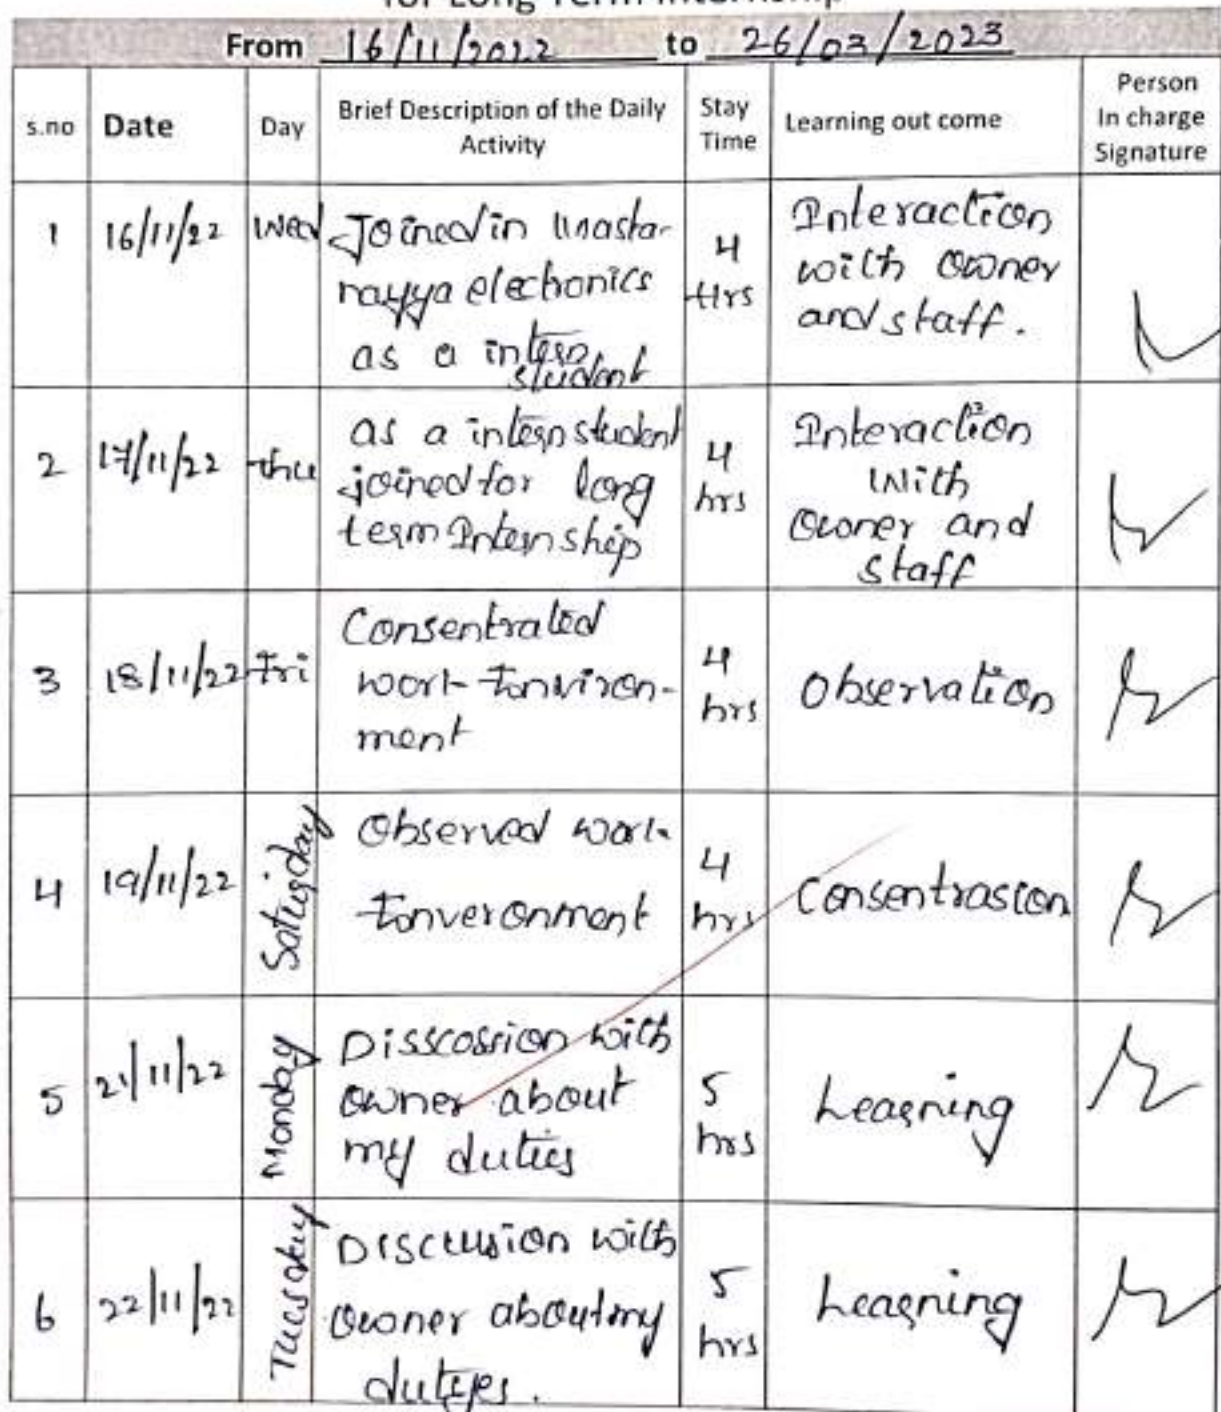 for Long Term Internship
From 16/11/2022 to 26/03/2023
s.no Date Day Brief Description of the Daily Activity Stay Time Learning out come Person In charge Signature
1 16/11/22 Wed
Joined in
nayya electronics
as a intern
student
4
Hrs
Interaction
with owner
and staff.
2 17/11/22 thu
as a intern student
joined for long
term Internship
4
hrs
Interaction
With
Owner and
staff
3 18/11/22 Fri
Consentrated
work Environ-
ment
4
hrs
Observation
4 19/11/22 Saturday
Observed work
Enveronment
4
hrs
Consentrasion
5 21/11/22 Monday
Disscossion with
owner about
my duties
5
hrs
Learning
6 22/11/22 Tuesday
Discussion with
owner about my
duties.
5
hrs
Learning